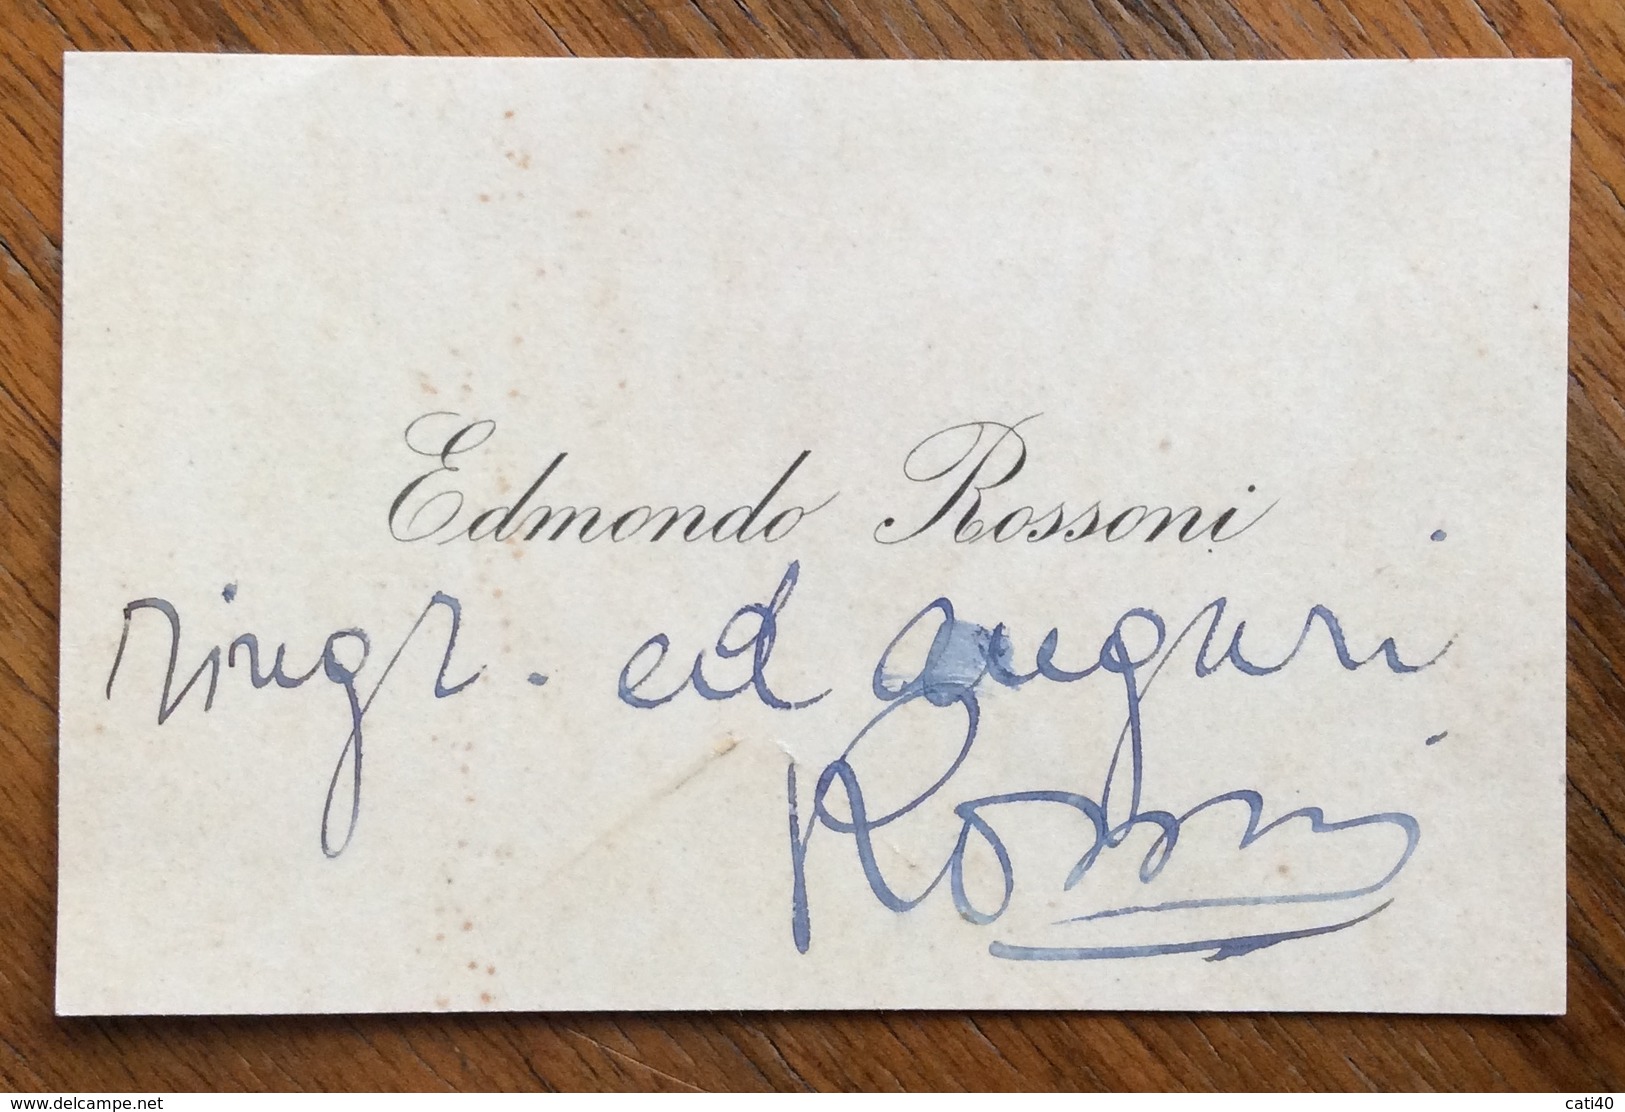 Edmondo Rossoni
ringr. ed auguri
Rossoni
www.delcampe.net
cati40